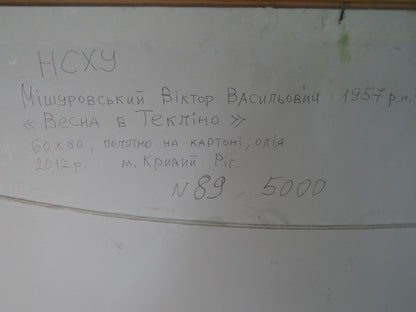 НСХУ
Мішуровський Віктор Васильович 1957 р.н.
« Весна в Текліно »
60х80, полотно на картоні, олія
2012 р. м. Кривий Ріг.
N 89 5000